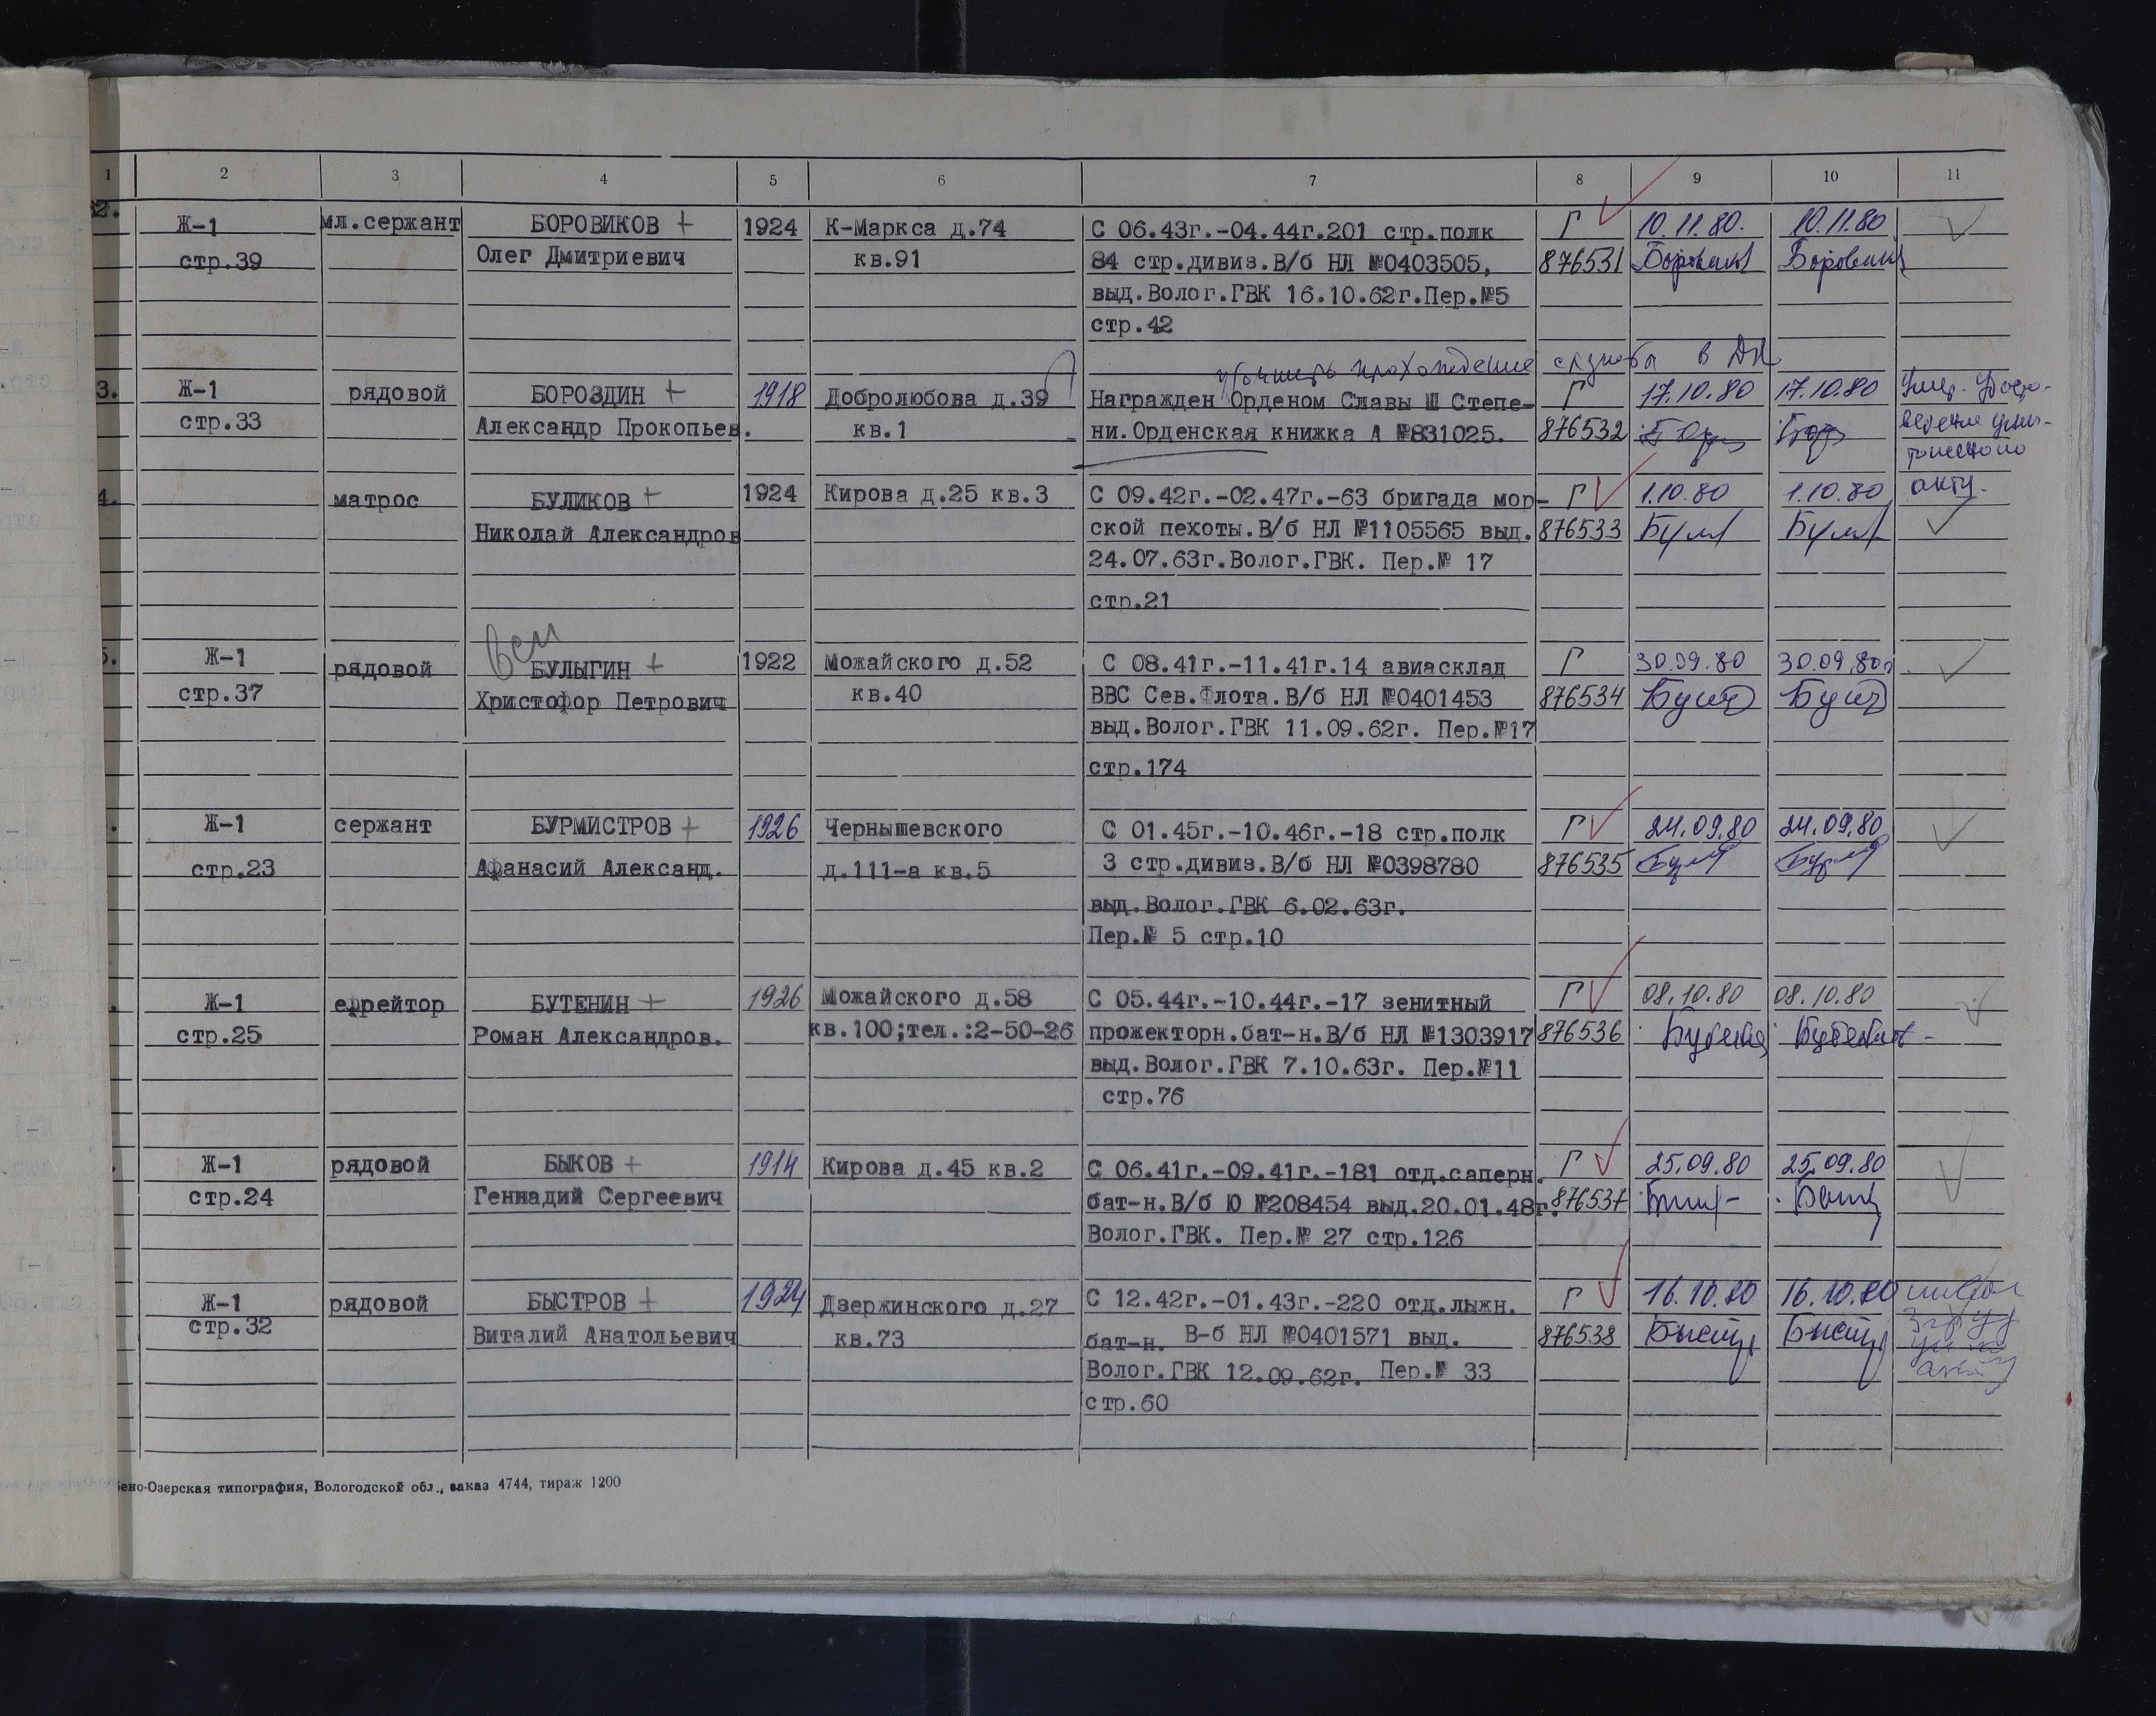 1 2 3 4 5 6 7 8 9 10 11
2. Ж-1 мл.сержант БОРОВИКОВ + 1924 К-Маркса д.74 С 06.43г.-04.44г.201 стр.полк Г 10.11.80. 10.11.80
стр.39 Олег Дмитриевич кв.91 84 стр.дивиз.В/б НЛ №0403505, 876531
выд.Волог.ГВК 16.10.62г.Пер.№5
стр.42
уточнить прохождение службы в ДА
3. Ж-1 рядовой БОРОЗДИН + 1918 Добролюбова д.39 Награжден Орденом Славы Ш Степе- Г 17.10.80 17.10.80
стр.33 Александр Прокопьев. кв.1 ни.Орденская книжка А №831025. 876532
4. матрос БУЛИКОВ + 1924 Кирова д.25 кв.3 С 09.42г.-02.47г.-63 бригада мор- Г 1.10.80 1.10.80 акту.
Николай Александров ской пехоты.В/б НЛ №1105565 выд. 876533
24.07.63г.Волог.ГВК. Пер.№ 17
стр.21
5. Ж-1 рядовой БУЛЫГИН + 1922 Можайского д.52 С 08.41г.-11.41г.14 авиасклад Г 30.09.80 30.09.80г
стр.37 Христофор Петрович кв.40 ВВС Сев.Флота.В/б НЛ №0401453 876534
выд.Волог.ГВК 11.09.62г. Пер.№17
стр.174
. Ж-1 сержант БУРМИСТРОВ + 1926 Чернышевского С 01.45г.-10.46г.-18 стр.полк Г 24.09.80 24.09.80
стр.23 Афанасий Александ. д.111-а кв.5 3 стр.дивиз.В/б НЛ №0398780 876535
выд.Волог.ГВК 6.02.63г.
Пер.№ 5 стр.10
. Ж-1 ефрейтор БУТЕНИН + 1926 Можайского д.58 С 05.44г.-10.44г.-17 зенитный Г 08.10.80 08.10.80
стр.25 Роман Александров. кв.100;тел.:2-50-26 прожекторн.бат-н.В/б НЛ №1303917 876536
выд.Волог.ГВК 7.10.63г. Пер.№11
стр.76
. Ж-1 рядовой БЫКОВ + 1914 Кирова д.45 кв.2 С 06.41г.-09.41г.-181 отд.саперн. Г 25.09.80 25.09.80
стр.24 Геннадий Сергеевич бат-н.В/б Ю №208454 выд.20.01.48г. 876537
Волог.ГВК. Пер.№ 27 стр.126
Ж-1 рядовой БЫСТРОВ + 1924 Дзержинского д.27 С 12.42г.-01.43г.-220 отд.лыжн. Г 16.10.80 16.10.80
стр.32 Виталий Анатольевич кв.73 бат-н. В-б НЛ №0401571 выд. 876538
Волог.ГВК 12.09.62г. Пер.№ 33
стр.60
ено-Озерская типография, Вологодской обл., заказ 4744, тираж 1200